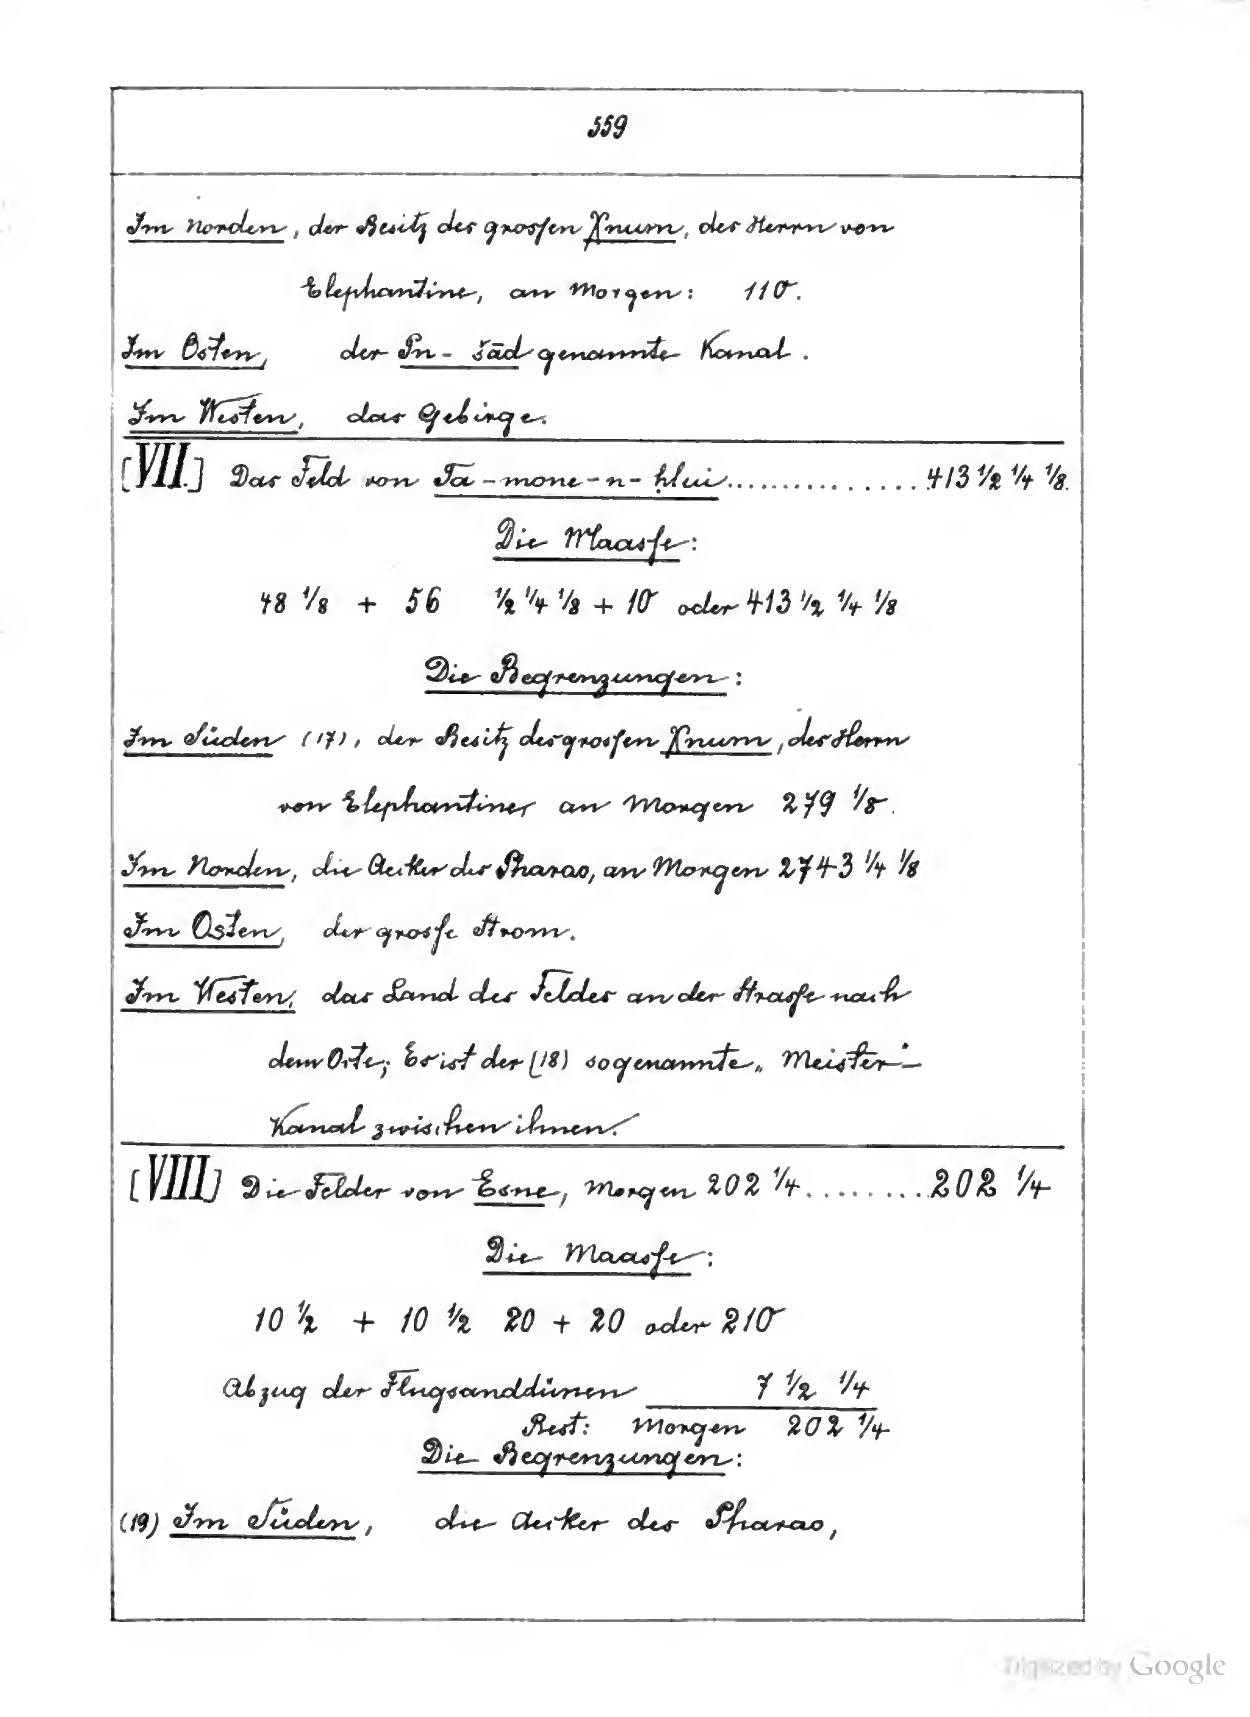 559
Im Norden, der Besitz des grossen Xnum, des Herrn von
Elephantine, an Morgen: 110.
Im Osten, der Pn-šād genannte Kanal.
Im Westen, das Gebirge.
[VII.] Das Feld von Ta-mone-n-ḫlui............... 413 ½ ¼ ⅛.
Die Maasse:
48 ⅛ + 56 ½ ¼ ⅛ + 10 oder 413 ½ ¼ ⅛
Die Begrenzungen:
Im Süden (17), der Besitz des grossen Xnum, des Herrn
von Elephantine, an Morgen 279 ⅛.
Im Norden, die Aecker des Pharao, an Morgen 2743 ¼ ⅛
Im Osten, der grosse Strom.
Im Westen, das Land des Feldes an der Strasse nach
dem Orte; Es ist der (18) sogenannte „Meister"-
Kanal zwischen ihnen.
[VIII] Die Felder von Esne, Morgen 202 ¼.........202 ¼
Die Maasse:
10 ½ + 10 ½ 20 + 20 oder 210
Abzug der Flugsanddünen 7 ½ ¼
Rest: Morgen 202 ¼
Die Begrenzungen:
(19) Im Süden, die Aecker des Pharao,
Digitized by Google